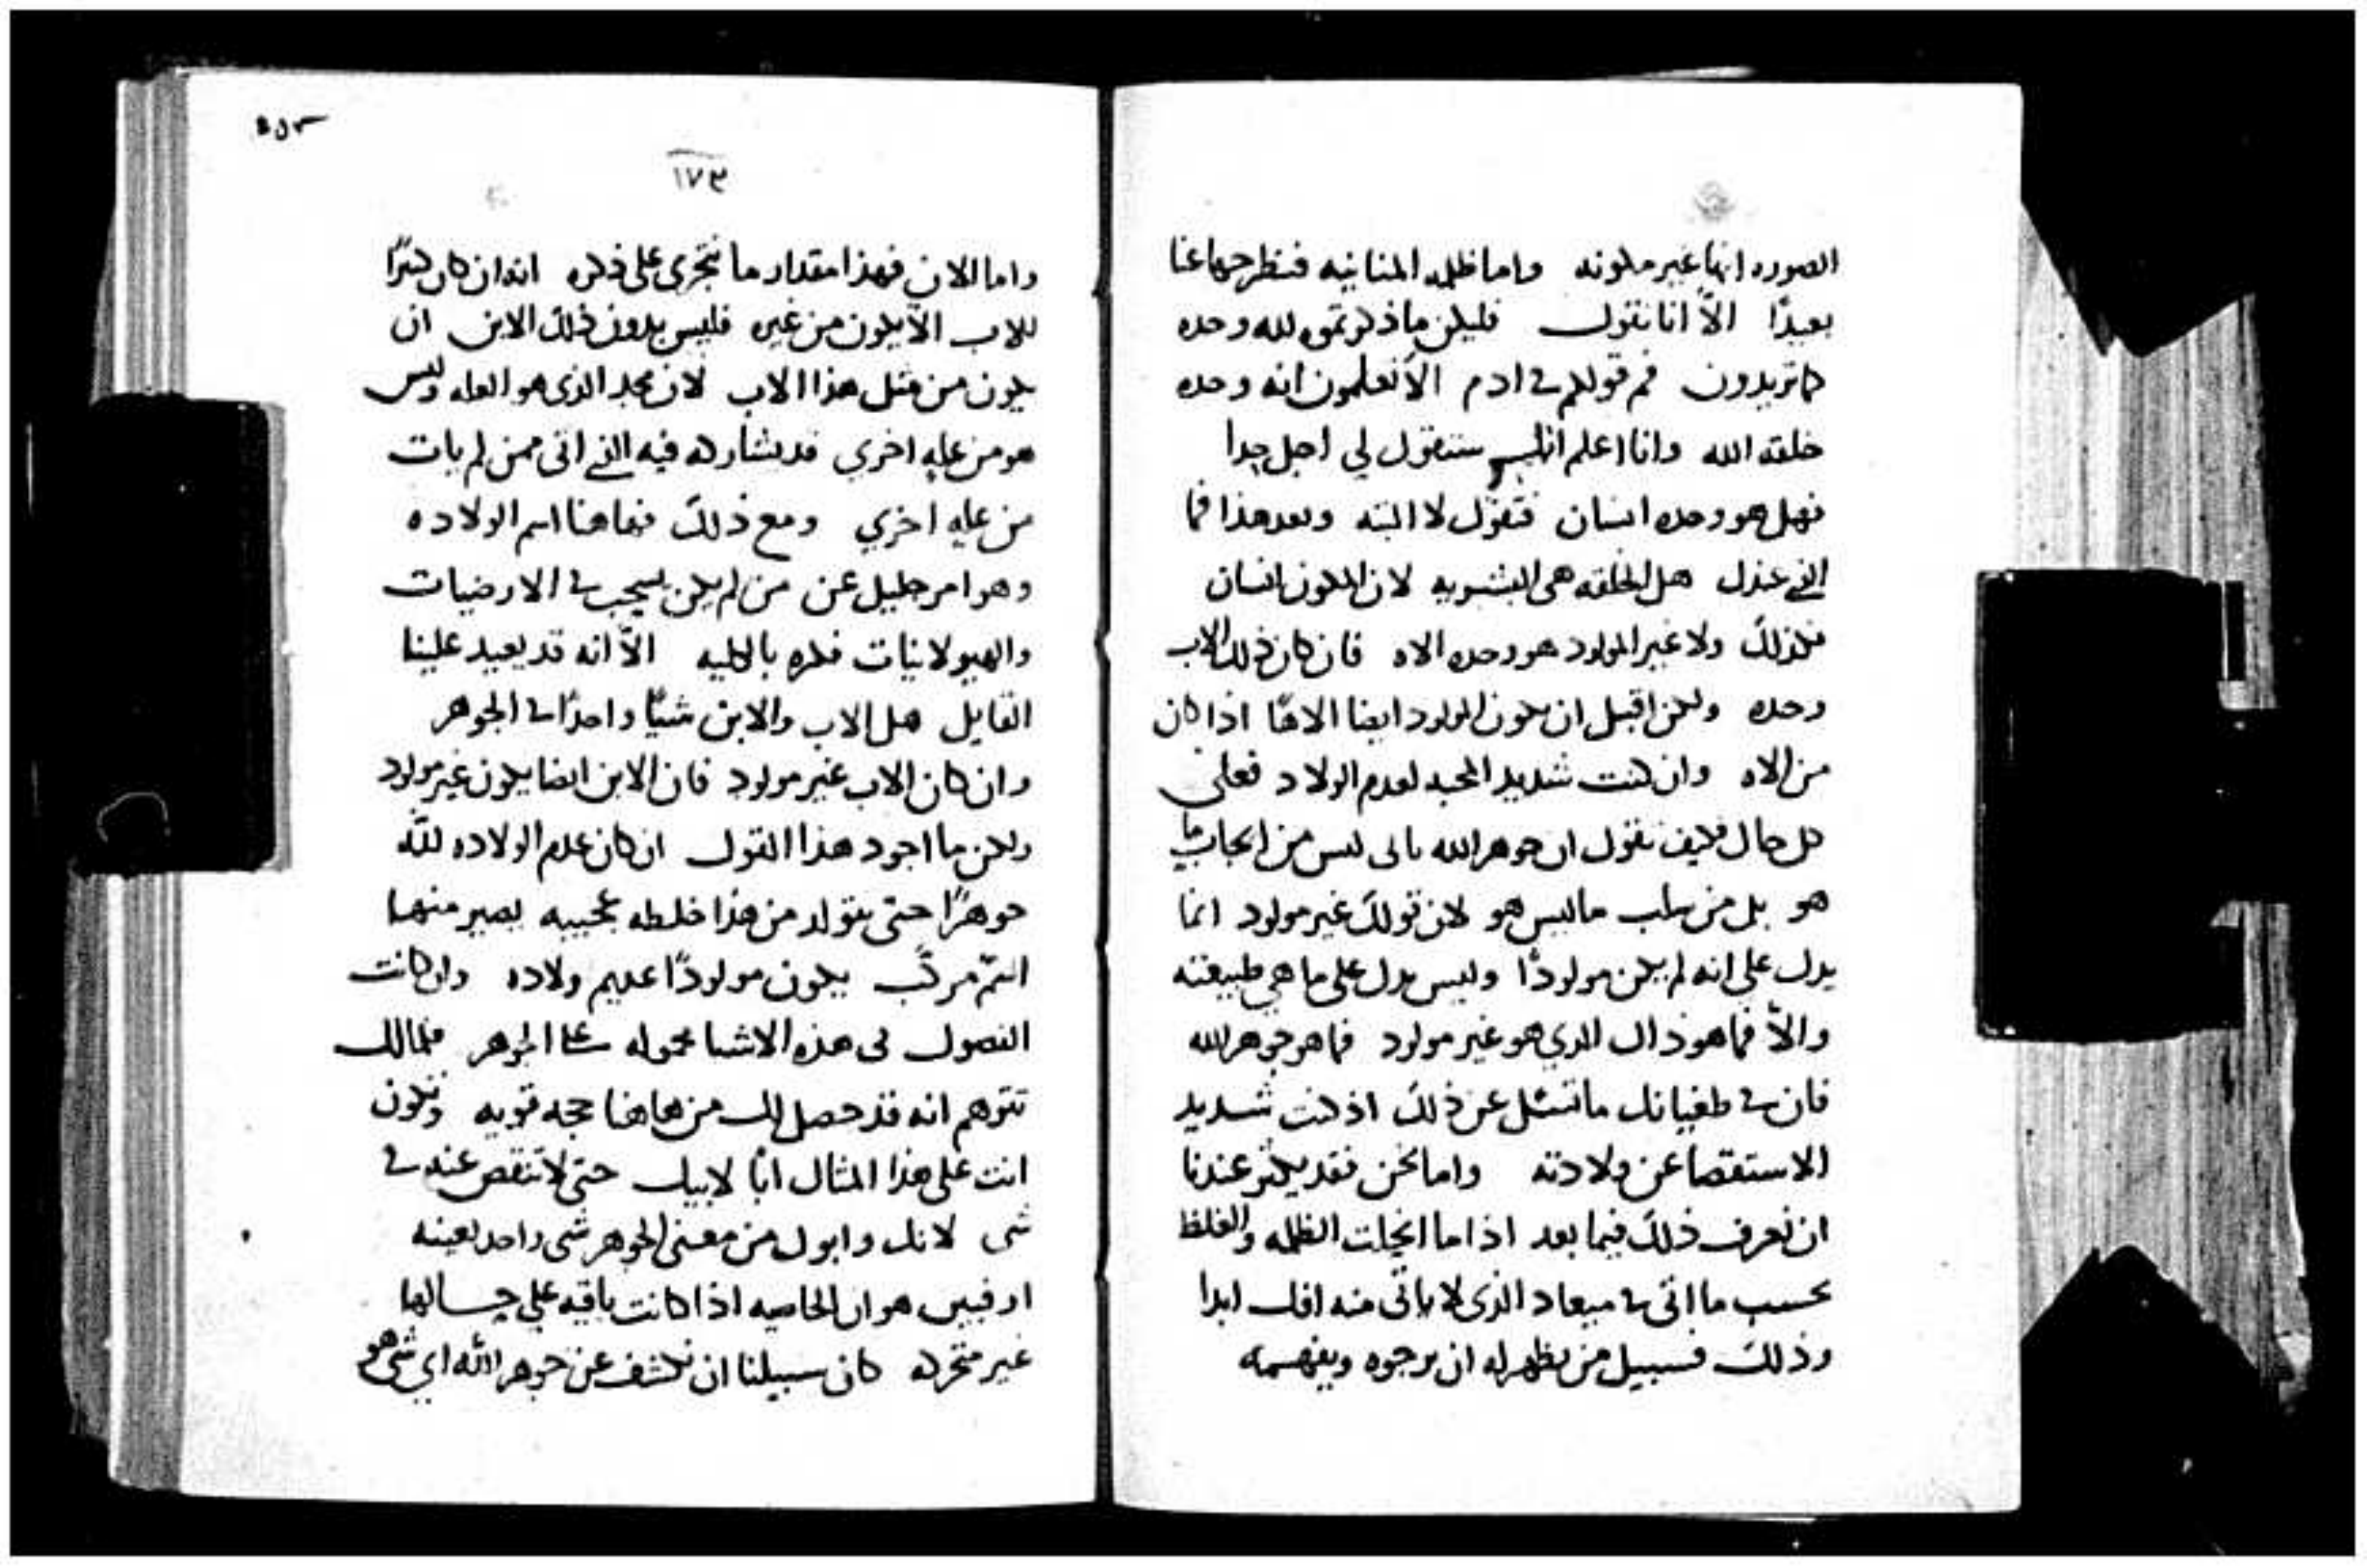 الصوره انها غير ملونه واما ظلمه المنانيه فنطرحها عنا
بعيدًا الاّ انا نقول فليكن ما ذكرتموه لله وحده
كما تريدون فم قولكم في ادم الا تعلمون انه وحده
خلقه الله وانا اعلم انك ستقول لي اجل جدا
فهل هو وحده انسان فتقول لا البته وبعد هذا فما
الذي عندك هل الخلقه هي البشريه لان المكون انسان
فكذلك ولا غير المولود هو وحده الاه فان كان ذلك الاب
وحده ولكن اقبل ان يكون المولود ايضا الاهًا اذا كان
من الاه وان كنت شديد المحبه لعدم الولاد فعلى
كل حال فكيف تقول ان جوهر الله باي ليس من ايجاب ما
هو بل من سلب ما ليس هو لان قولك غير مولود انما
يدل على انه لم يكن مولودًا وليس يدل على ما هي طبيعته
والاّ فما هو ذاك الذي هو غير مولود فما هو جوهر الله
فان في طغيانك ما تسئل عن ذلك اذ كنت شديد
الاستقصا عن ولادته واما نحن فقد يكثر عندنا
ان نعرف ذلك فيما بعد اذا ما انجلت الظلمه والغلظ
بحسب ما اتى في ميعاد الذى لا ياتى منه افك ابدا
وذلك فسبيل من يظهر له ان يرجوه ويفهمه
١٧٣
واما الان فهذا مقدار ما نتجرى على ذكره انه ان كان كبيرًا
للاب الاّ يكون من غيره فليس بدون ذلك الابن ان
يكون من مثل هذا الاب لان مجد الذى هو العله وليس
هو من عله اخري قد يشاركه فيه الذي اتى ممن لم يات
من عله اخري ومع ذلك فهاهنا اسم الولاده
وهو امر جليل عن من لم يكن يسحب في الارضيات
والهيولانيات فكره بالكليه الاّ انه قد يعيد علينا
القايل هل الاب والابن شيًا واحدًا في الجوهر
وان كان الاب غير مولود فان الابن ايضا يكون غير مولود
ولكن ما اجود هذا القول ان كان عدم الولاده لله
جوهرًا حتى يتولد من هذا خلطه عجيبه يصير منها
اسم مركب يكون مولودًا عديم ولاده وان كانت
الفصول في هذه الاشيا محموله على الجوهر فما لك
تتوهم انه قد حصل لك من هاهنا حجه قويه وتكون
انت على هذا المثال ابًا لابيك حتى لا تنقص عنه في
شى لانك وابوك من معنى الجوهر شى واحد بعينه
او فبين هو ان الخاصيه اذا كانت باقيه على حالها
غير متحركه كان سبيلنا ان نكشف عن جوهر الله اي شى هو